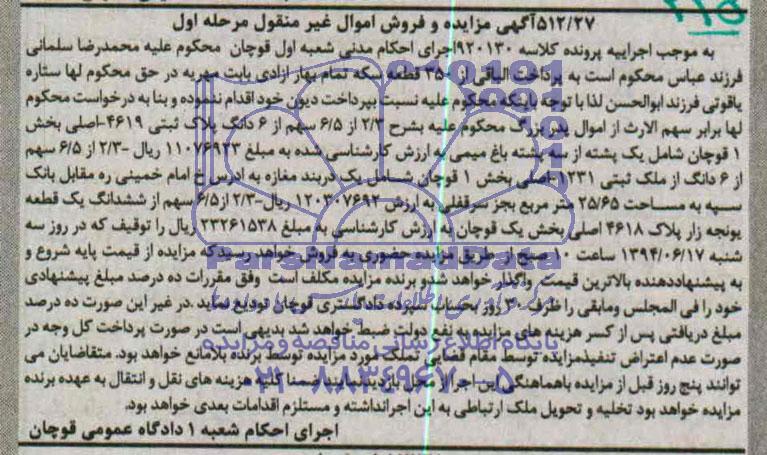 ۵۱۲/۲۷آگهی مزایده و فروش اموال غیر منقول مرحله اول
به موجب اجراییه پرونده کلاسه ۹۲۰۱۳۰اجرای احکام مدنی شعبه اول قوچان محکوم علیه محمدرضا سلمانی
فرزند عباس محکوم است به پرداخت الباقی از ۳۵۰ قطعه سکه تمام بهار ازادی بابت مهریه در حق محکوم لها ستاره
یاقوتی فرزند ابوالحسن لذا با توجه باینکه محکوم علیه نسبت بپرداخت دیون خود اقدام ننموده و بنا به درخواست محکوم
لها برابر سهم الارث از اموال پدر بزرگ محکوم علیه بشرح ۲/۳ از ۶/۵ سهم از ۶ دانگ پلاک ثبتی ۴۶۱۹-اصلی بخش
۱ قوچان شامل یک پشته از سه پشته باغ میمی به ارزش کارشناسی شده به مبلغ ۱۱۰۷۶۹۲۳ ریال -۲/۳ از ۶/۵ سهم
از ۶ دانگ از ملک ثبتی ۱۲۳۱-اصلی بخش ۱ قوچان شامل یک دربند مغازه به ادرس خ امام خمینی ره مقابل بانک
سپه به مساحت ۲۵/۶۵ متر مربع بجز سرقفلی به ارزش ۱۲۰۳۰۷۶۹۲ ریال-۲/۳ از۶/۵ سهم از ششدانگ یک قطعه
یونجه زار پلاک ۴۶۱۸ اصلی بخش یک قوچان به ارزش کارشناسی به مبلغ ۲۳۲۶۱۵۳۸ ریال را توقیف که در روز سه
شنبه ۱۳۹۴/۰۶/۱۷ ساعت ۱۰ صبح از طریق مزایده حضوری به فروش خواهد رسید که مزایده از قیمت پایه شروع و
به پیشنهاددهنده بالاترین قیمت واگذار خواهد شد و برنده مزایده مکلف است وفق مقررات ده درصد مبلغ پیشنهادی
خود را فی المجلس ومابقی را ظرف ۳۰ روز بحساب سپرده دادگستری قوچان تودیع نماید .در غیر این صورت ده درصد
مبلغ دریافتی پس از کسر هزینه های مزایده به نفع دولت ضبط خواهد شد بدیهی است در صورت پرداخت کل وجه در
صورت عدم اعتراض تنفیذمزایده توسط مقام قضایی تملک مورد مزایده توسط برنده بلامانع خواهد بود. متقاضایان می
توانند پنج روز قبل از مزایده باهماهنگی این اجرا از محل بازدید نمایند ضمنا کلیه هزینه های نقل و انتقال به عهده برنده
مزایده خواهد بود تخلیه و تحویل ملک ارتباطی به این اجرانداشته و مستلزم اقدامات بعدی خواهد بود.
اجرای احکام شعبه ۱ دادگاه عمومی قوچان
ParsNamadData
پایگاه اطلاع رسانی مناقصه و مزایده
۰۲۱-۸۸۳۴۹۶۷۰-۵